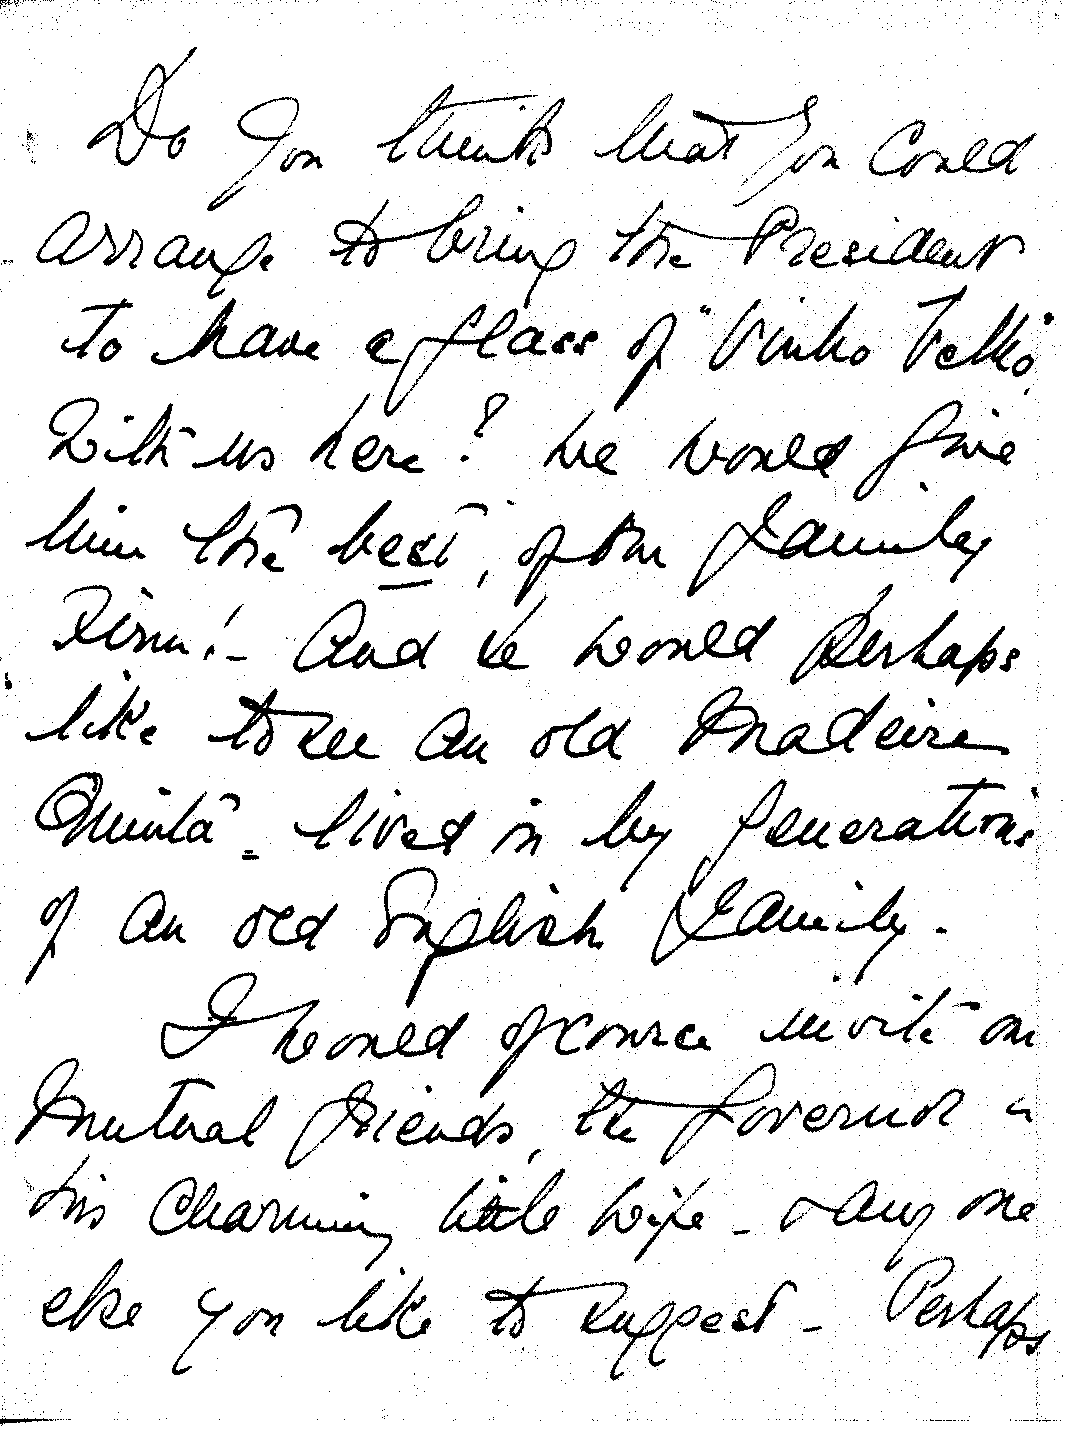 Do you think that you could
arrange to bring the President
to have a glass of "Vinho Velho"
with us here? We would give
him the best, of our family
Firm! - And he would perhaps
like to see an old Madeira
Quinta - lived in by generations
of an old English family.
I would of course invite our
mutual friends, the Governor &
his charming little wife - & any one
else you like to suggest - Perhaps